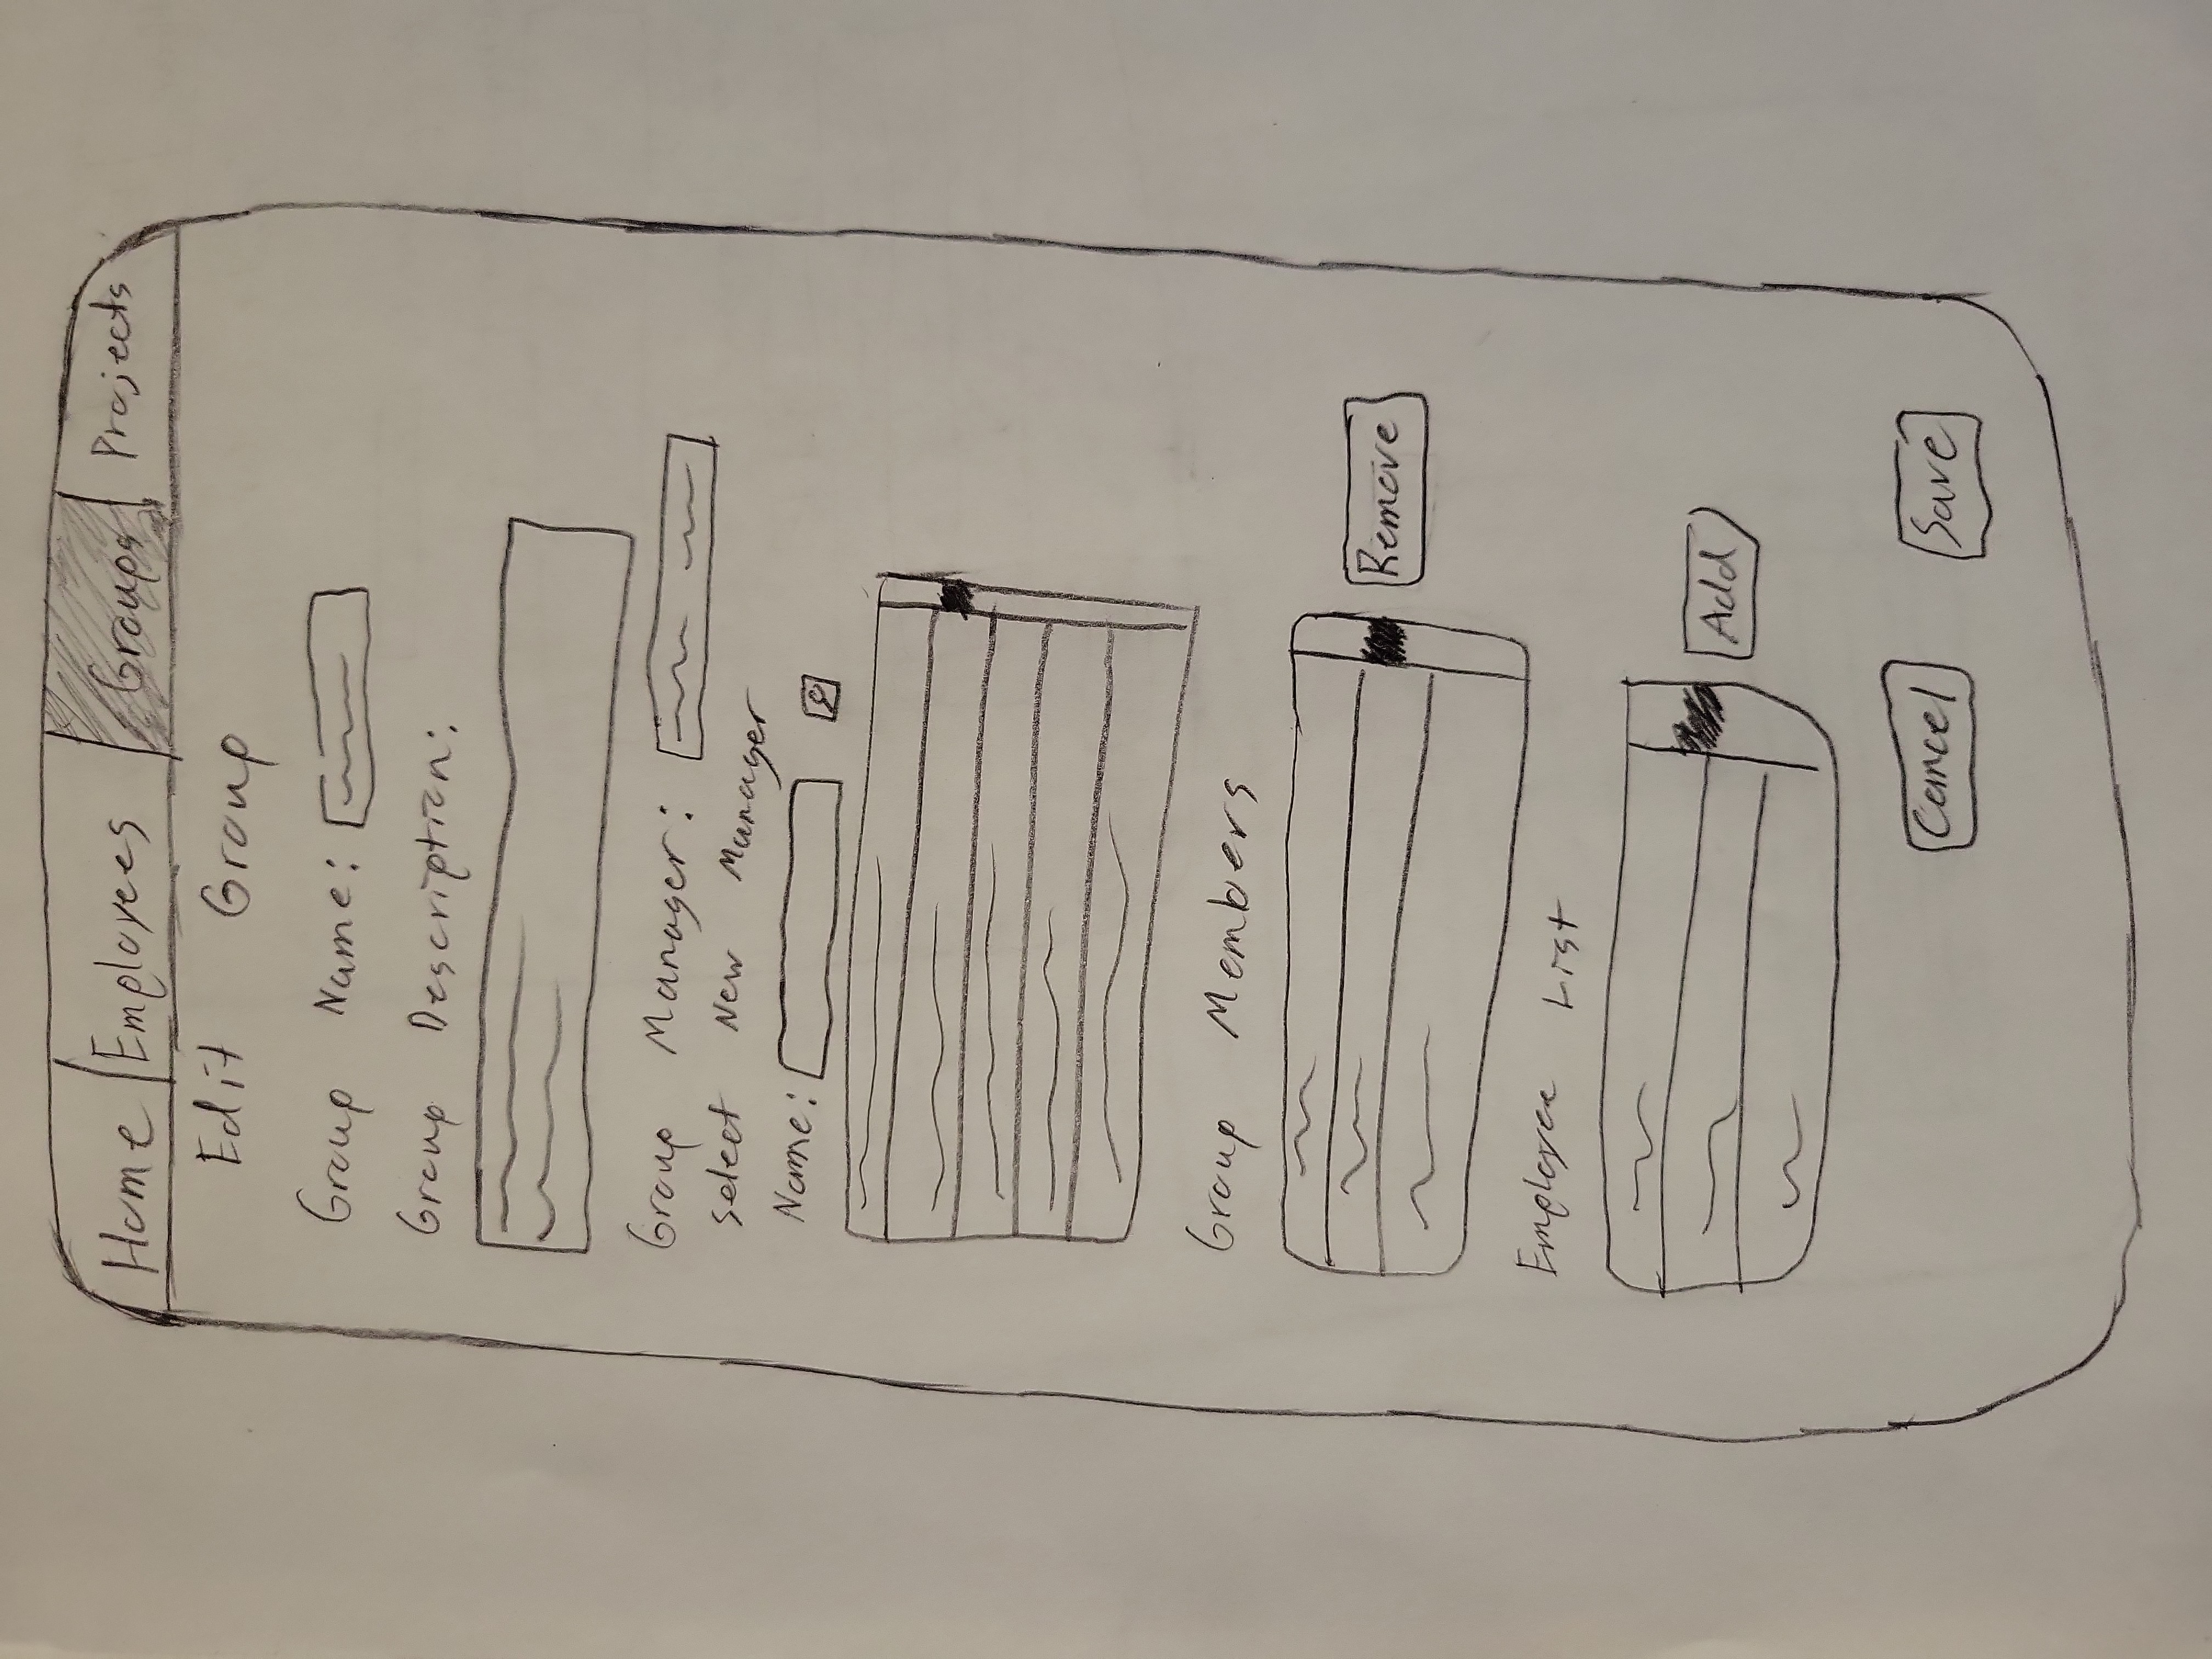 Home Employees Groups Projects
Edit Group
Group Name:
Group Description:
Group Manager:
Select New Manager
Name:
Group Members
Remove
Employee List
Add
Cancel Save